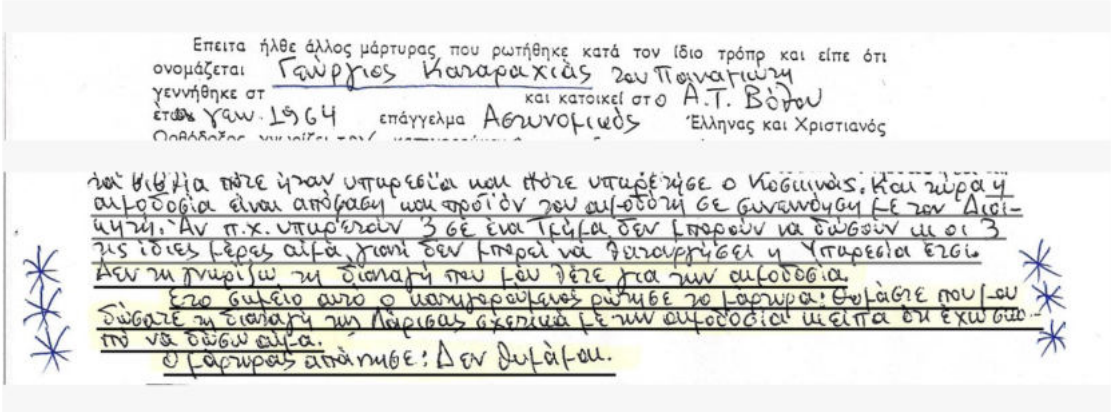 Επειτα ήλθε άλλος μάρτυρας που ρωτήθηκε κατά τον ίδιο τρόπρ και είπε ότι
ονομάζεται Γεώργιος Καταραχιάς του Παναγιώτη
γεννήθηκε στ και κατοικεί στο Α.Τ. Βόλου
έτος γεν. 1964 επάγγελμα Αστυνομικός Έλληνας και Χριστιανός
Ορθόδοξος γνωρίζει τον
τα βιβλία πότε ήταν υπηρεσία και πότε υπηρέτησε ο Κοσμινάς. Και τώρα η
αιμοδοσία είναι απόφαση και προϊόν του αιμοδότη σε συνεννόηση με τον Διοι-
κητή. Αν π.χ. υπηρετούν 3 σε ένα Τμήμα δεν μπορούν να δώσουν κι οι 3
τις ίδιες μέρες αίμα, γιατί δεν μπορεί να λειτουργήσει η Υπηρεσία έτσι.
Δεν τη γνωρίζω τη διαταγή που μου λέτε για την αιμοδοσία.
Στο σημείο αυτό ο κατηγορούμενος ρώτησε το μάρτυρα: Θυμάστε που μου
δώσατε τη διαταγή της Λάρισας σχετικά με την αιμοδοσία κι είπα ότι έχω σκο-
πό να δώσω αίμα.
Ο μάρτυρας απάντησε: Δεν θυμάμαι.